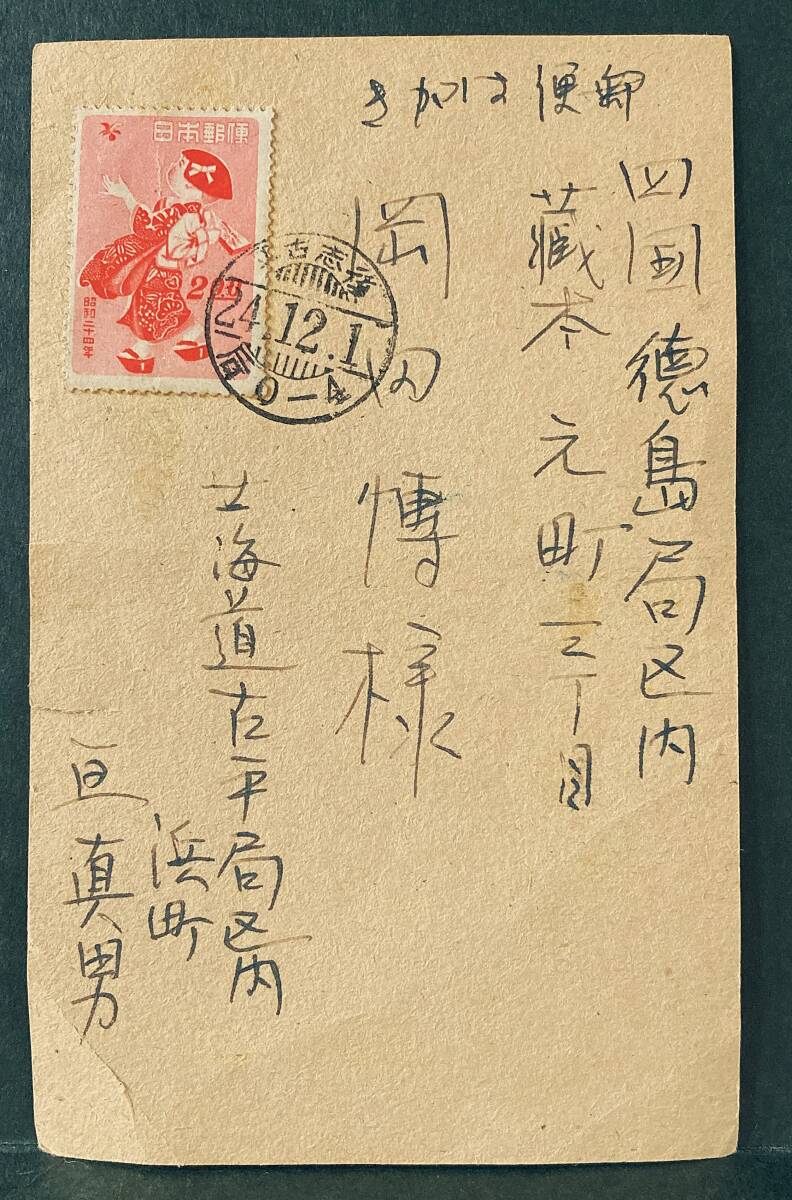 きがは便郵
四国徳島局区内
蔵本元町三丁目
岡田博様
北海道古平局区内
浜町
亘真男
日本郵便
2.00
昭和二十四年
古志後
24.12.1
后0-4